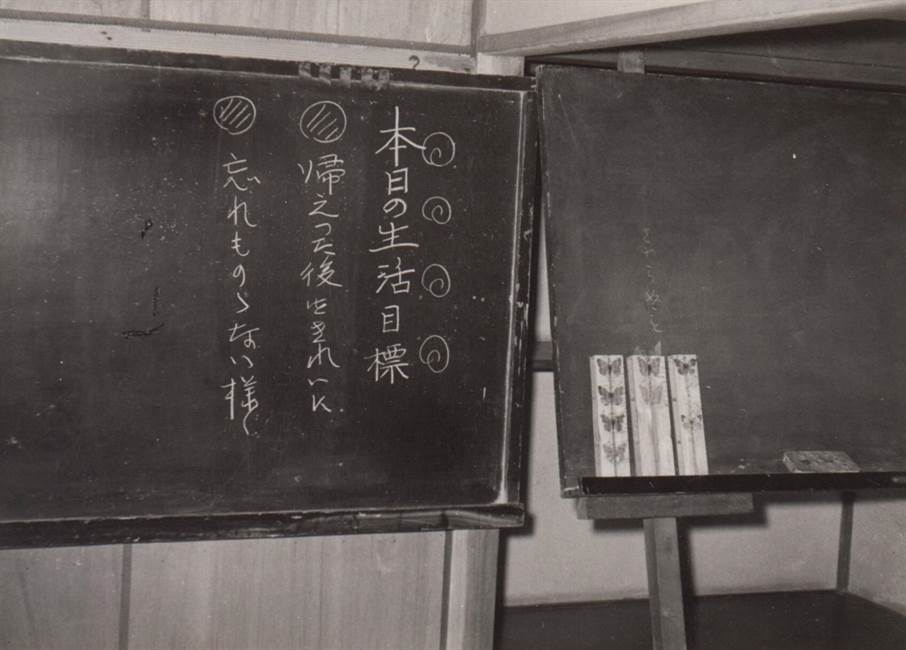 本日の生活目標
帰えった後をきれいに
忘れものゝない様に